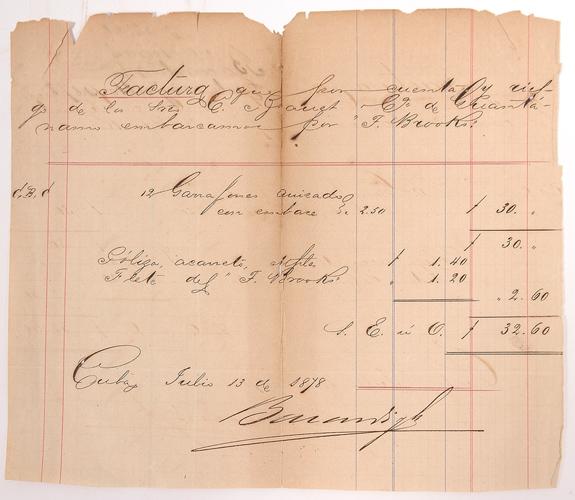 Factura que por cuenta y ries-
go de los Sres C. Brauet y Ca de Guantá-
namo embarcamos por "F. Brooks".
12 Garrafones anizado
con embace 2.50 $ 30. "
$ 30. "
Póliza, acarreto, $ 1.40
Flete del "F. Brooks" " 1.20
" 2.60
S. E. ú O. $ 32.60
Cuba Julio 13 de 1878